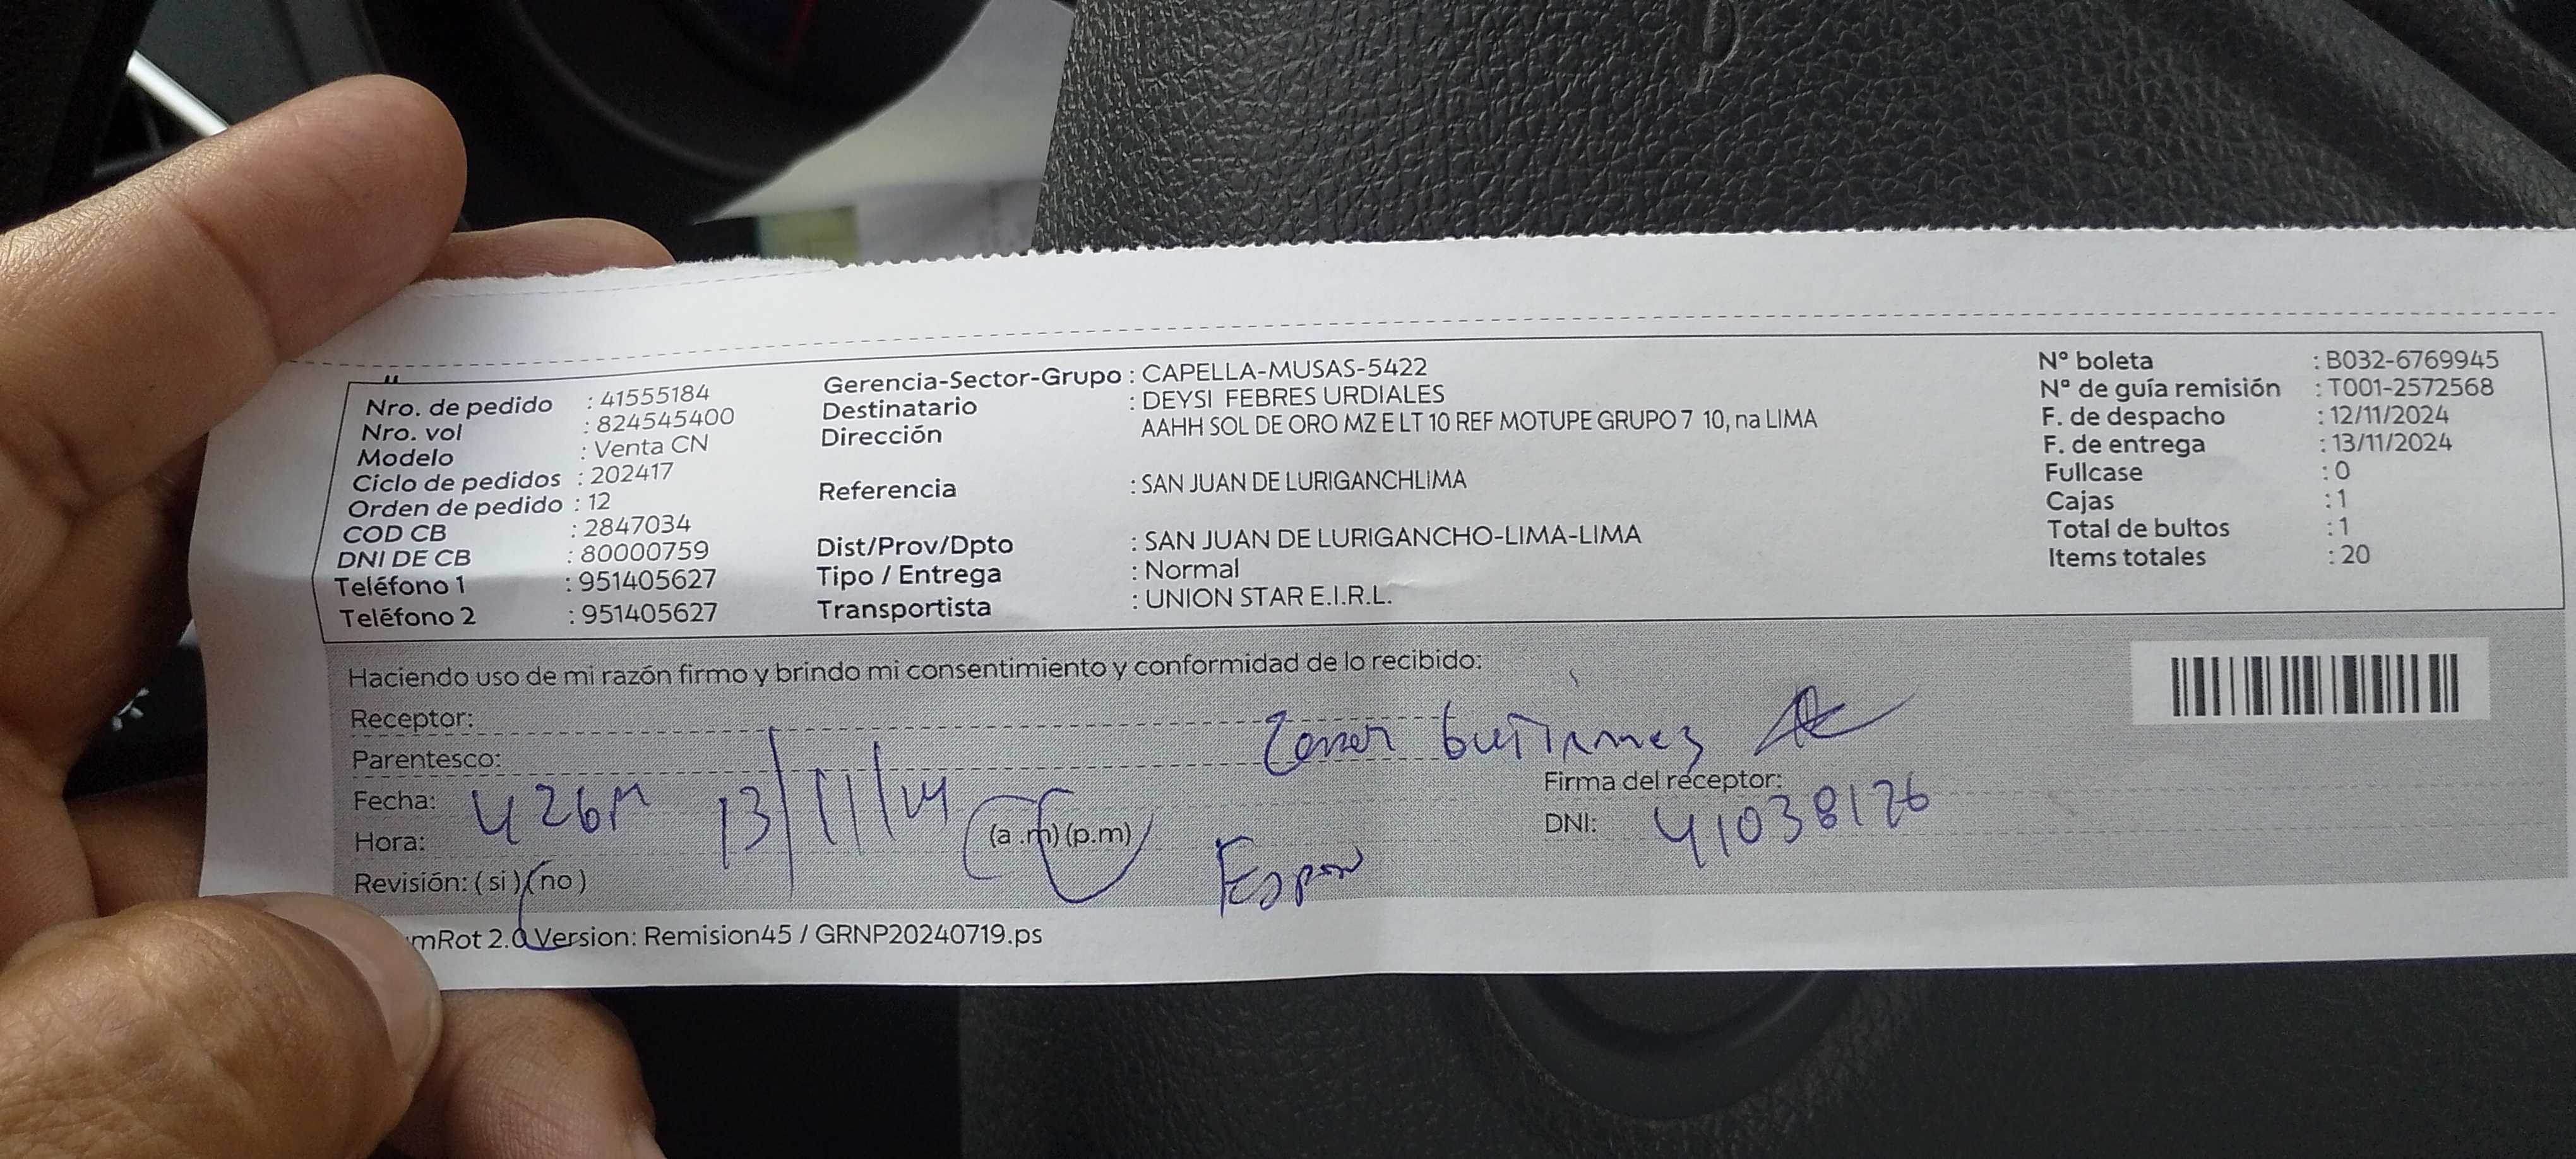 Nro. de pedido : 41555184
Nro. vol : 824545400
Modelo : Venta CN
Ciclo de pedidos : 202417
Orden de pedido : 12
COD CB : 2847034
DNI DE CB : 80000759
Teléfono 1 : 951405627
Teléfono 2 : 951405627
Gerencia-Sector-Grupo : CAPELLA-MUSAS-5422
Destinatario : DEYSI FEBRES URDIALES
Dirección AAHH SOL DE ORO MZ E LT 10 REF MOTUPE GRUPO 7 10, na LIMA
Referencia : SAN JUAN DE LURIGANCHLIMA
Dist/Prov/Dpto : SAN JUAN DE LURIGANCHO-LIMA-LIMA
Tipo / Entrega : Normal
Transportista : UNION STAR E.I.R.L.
Nº boleta : B032-6769945
Nº de guía remisión : T001-2572568
F. de despacho : 12/11/2024
F. de entrega : 13/11/2024
Fullcase : 0
Cajas : 1
Total de bultos : 1
Items totales : 20
Haciendo uso de mi razón firmo y brindo mi consentimiento y conformidad de lo recibido:
Receptor:
Parentesco:
Fecha: 13/11/
Hora: (a.m) (p.m)
Revisión: ( si ) ( no )
Firma del receptor:
DNI: 41038126
mRot 2.0 Version: Remision45 / GRNP20240719.ps